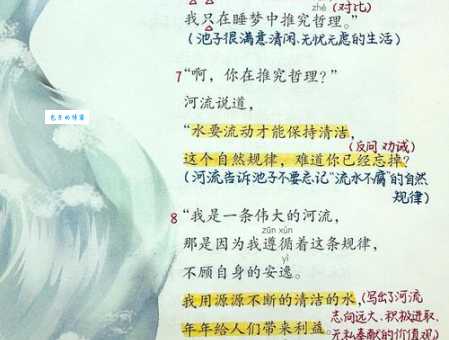 zhé (对比)
我只在睡梦中推究哲理。”
(池子很满意清闲、无忧无虑的生活)
7 “啊，你在推究哲理？”
河流说道，
“水要流动才能保持清洁，
(反问 劝诫)
这个自然规律，难道你已经忘掉？
(河流告诉池子不要忘记“流水不腐”的自然
规律)
8 “我是一条伟大的河流，
zūn xún
那是因为我遵循着这条规律，
yì
不顾自身的安逸。
我用源源不断的清洁的水，(写出了河流
志向远大、积极进取、
年年给人们带来利益。
无私奉献的价值观)